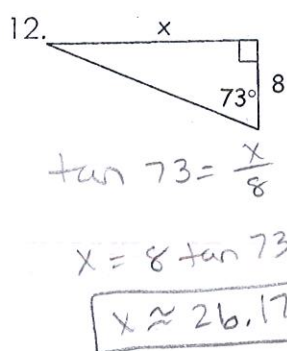 12.
x
73° 8
tan 73 = x/8
x = 8 tan 73
x ≈ 26.17